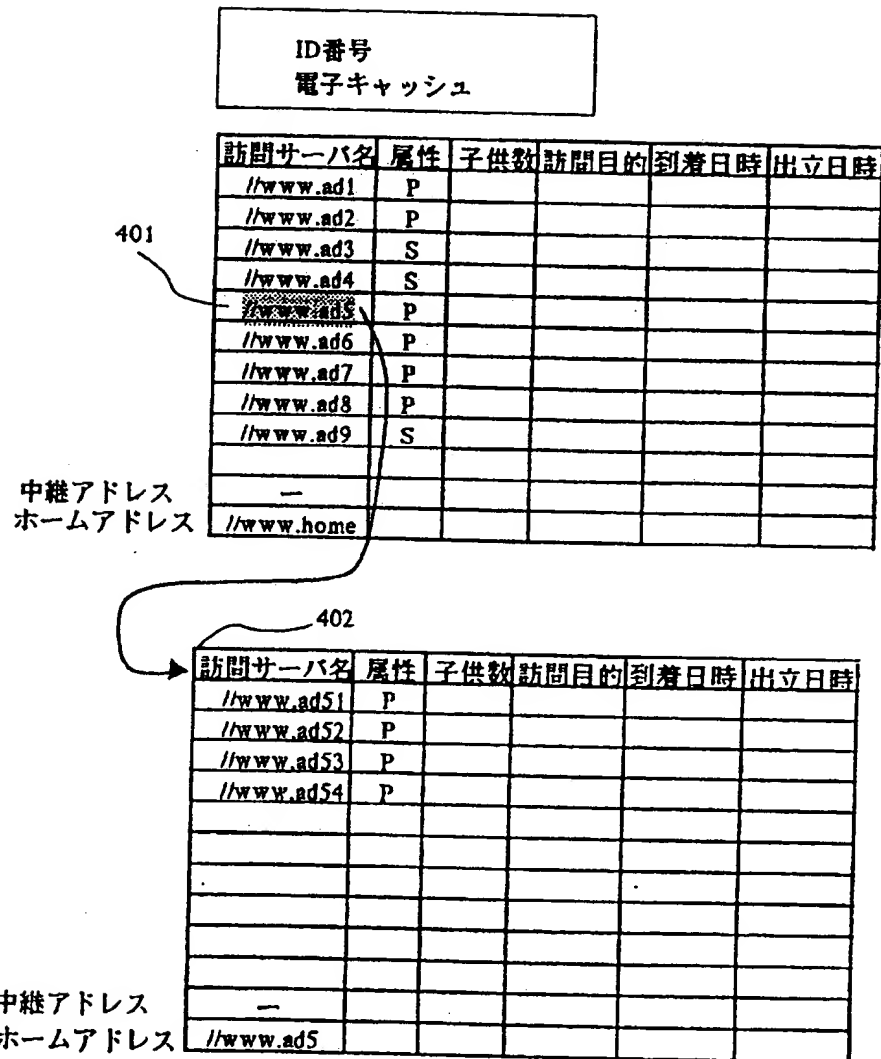 ID番号
電子キャッシュ
訪問サーバ名 属性 子供数 訪問目的 到着日時 出立日時
//www.ad1 P
//www.ad2 P
401
//www.ad3 S
//www.ad4 S
//www.ad5 P
//www.ad6 P
//www.ad7 P
//www.ad8 P
//www.ad9 S
中継アドレス ー
ホームアドレス //www.home
402
訪問サーバ名 属性 子供数 訪問目的 到着日時 出立日時
//www.ad51 P
//www.ad52 P
//www.ad53 P
//www.ad54 P
中継アドレス ー
ホームアドレス //www.ad5